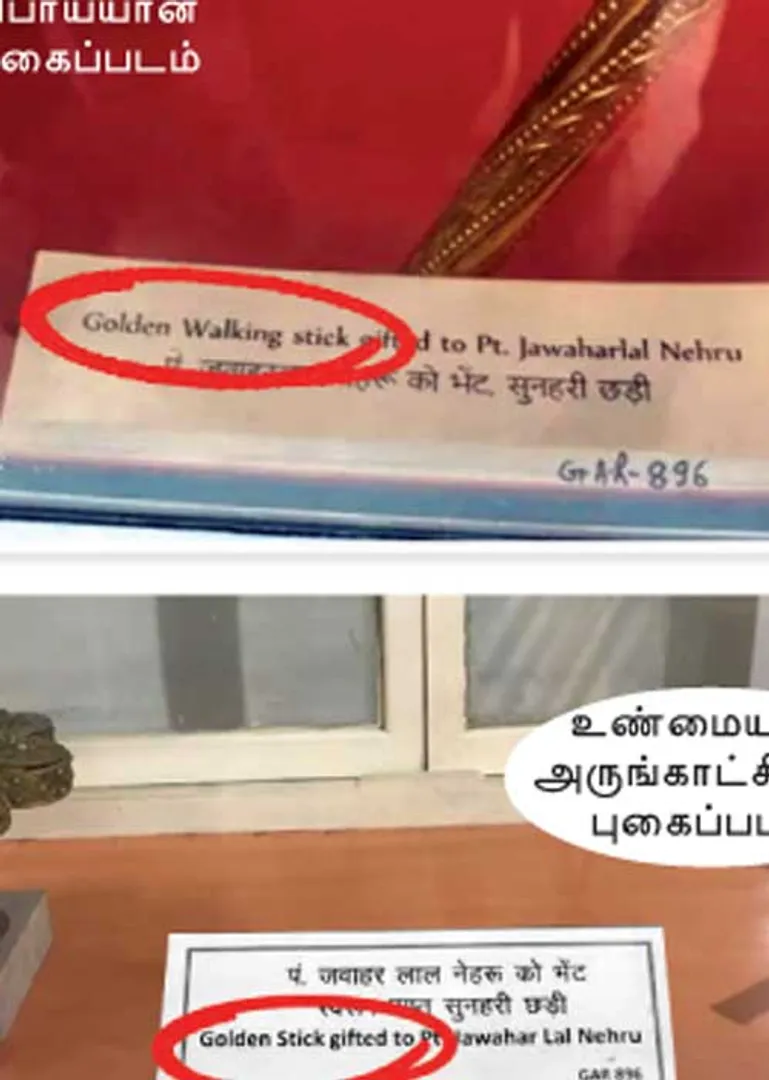 பொய்யான
புகைப்படம்
Golden Walking stick gifted to Pt. Jawaharlal Nehru
पं. जवाहरलाल नेहरू को भेंट सुनहरी छड़ी
GAR-896
உண்மைய
அருங்காட்சி
புகைப்பட
पं. जवाहर लाल नेहरू को भेंट
सुनहरी छड़ी
Golden Stick gifted to Pt. Jawahar Lal Nehru
GAR 896